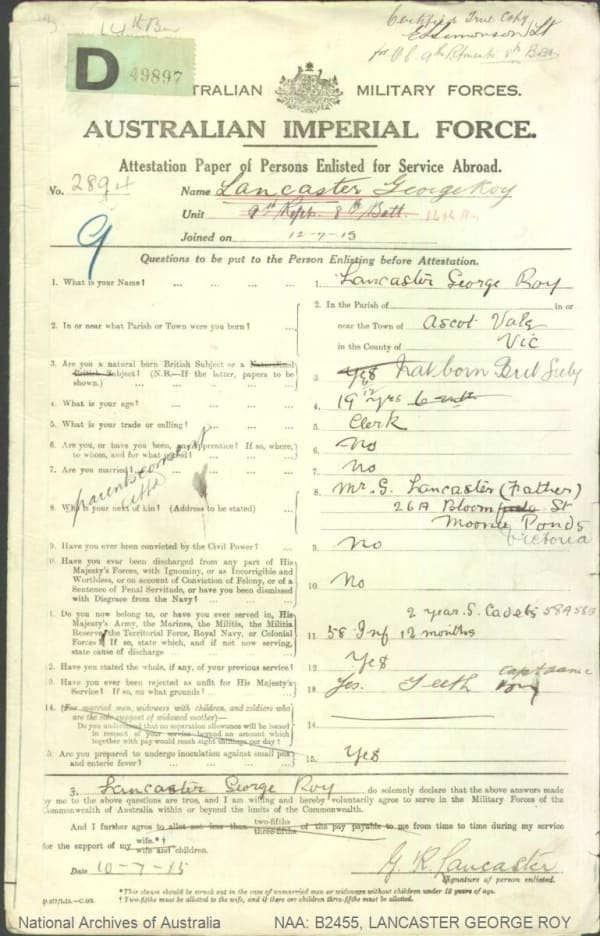 14th Bn
Certified True Copy
Lt
for O C 9th Rfments 8th Battn
D 49897
TRALIAN MILITARY FORCES.
AUSTRALIAN IMPERIAL FORCE.
Attestation Paper of Persons Enlisted for Service Abroad.
No. 2894 Name Lancaster George Roy
Unit 9th Refts. 8th Batt. 14th Bn
Joined on 12-7-15
9
Questions to be put to the Person Enlisting before Attestation.
1. What is your Name? ... ... ... ... 1. Lancaster George Roy
2. In or near what Parish or Town were you born? ... 2. In the Parish of in or
near the Town of Ascot Vale
in the County of Vic
3. Are you a natural born British Subject or a Naturalized
British Subject? (N.B.—If the latter, papers to be
shown.) ... ... ... ... 3. Yes Nat born Brit Subj
4. What is your age? ... ... ... ... 4. 19 yrs 6 mth
5. What is your trade or calling? ... ... ... 5. Clerk
6. Are you, or have you been, an Apprentice? If so, where,
to whom, and for what period? ... ... 6. No
7. Are you married? ... ... ... 7. No
parents consent
att'd
8. Who is your next of kin? (Address to be stated) ... 8. Mr. G. Lancaster (Father)
26A Bloom St
Moonee Ponds
Victoria
9. Have you ever been convicted by the Civil Power? ... 9. No
0. Have you ever been discharged from any part of His
Majesty's Forces, with Ignominy, or as Incorrigible and
Worthless, or on account of Conviction of Felony, or of a
Sentence of Penal Servitude, or have you been dismissed
with Disgrace from the Navy? ... ... 10. No
1. Do you now belong to, or have you ever served in, His
Majesty's Army, the Marines, the Militia, the Militia
Reserve, the Territorial Force, Royal Navy, or Colonial
Forces? If so, state which, and if not now serving,
state cause of discharge ... ... 11. 2 years S. Cadets 58A
58 Inf 12 months
2. Have you stated the whole, if any, of your previous service? 12 Yes
3. Have you ever been rejected as unfit for His Majesty's
Service? If so, on what grounds? ... ... 13 Yes. Teeth
14. (For married men, widowers with children, and soldiers who
are the sole support of widowed mother)—
Do you understand that no separation allowance will be issued
in respect of your service beyond an amount which
together with pay would reach eight shillings per day? 14.
5. Are you prepared to undergo inoculation against small pox
and enteric fever? ... ... ... 15. Yes
3. Lancaster George Roy do solemnly declare that the above answers made
by me to the above questions are true, and I am willing and hereby voluntarily agree to serve in the Military Forces of the
Commonwealth of Australia within or beyond the limits of the Commonwealth.
And I further agree to allot not less than two-fifths three-fifths of the pay payable to me from time to time during my service
for the support of my wife.*† wife and children.
Date 10-7-15 G. R. Lancaster
Signature of person enlisted.
*This clause should be struck out in the case of unmarried men or widowers without children under 18 years of age.
† Two-fifths must be allotted to the wife, and if there are children three-fifths must be allotted.
National Archives of Australia NAA: B2455, LANCASTER GEORGE ROY